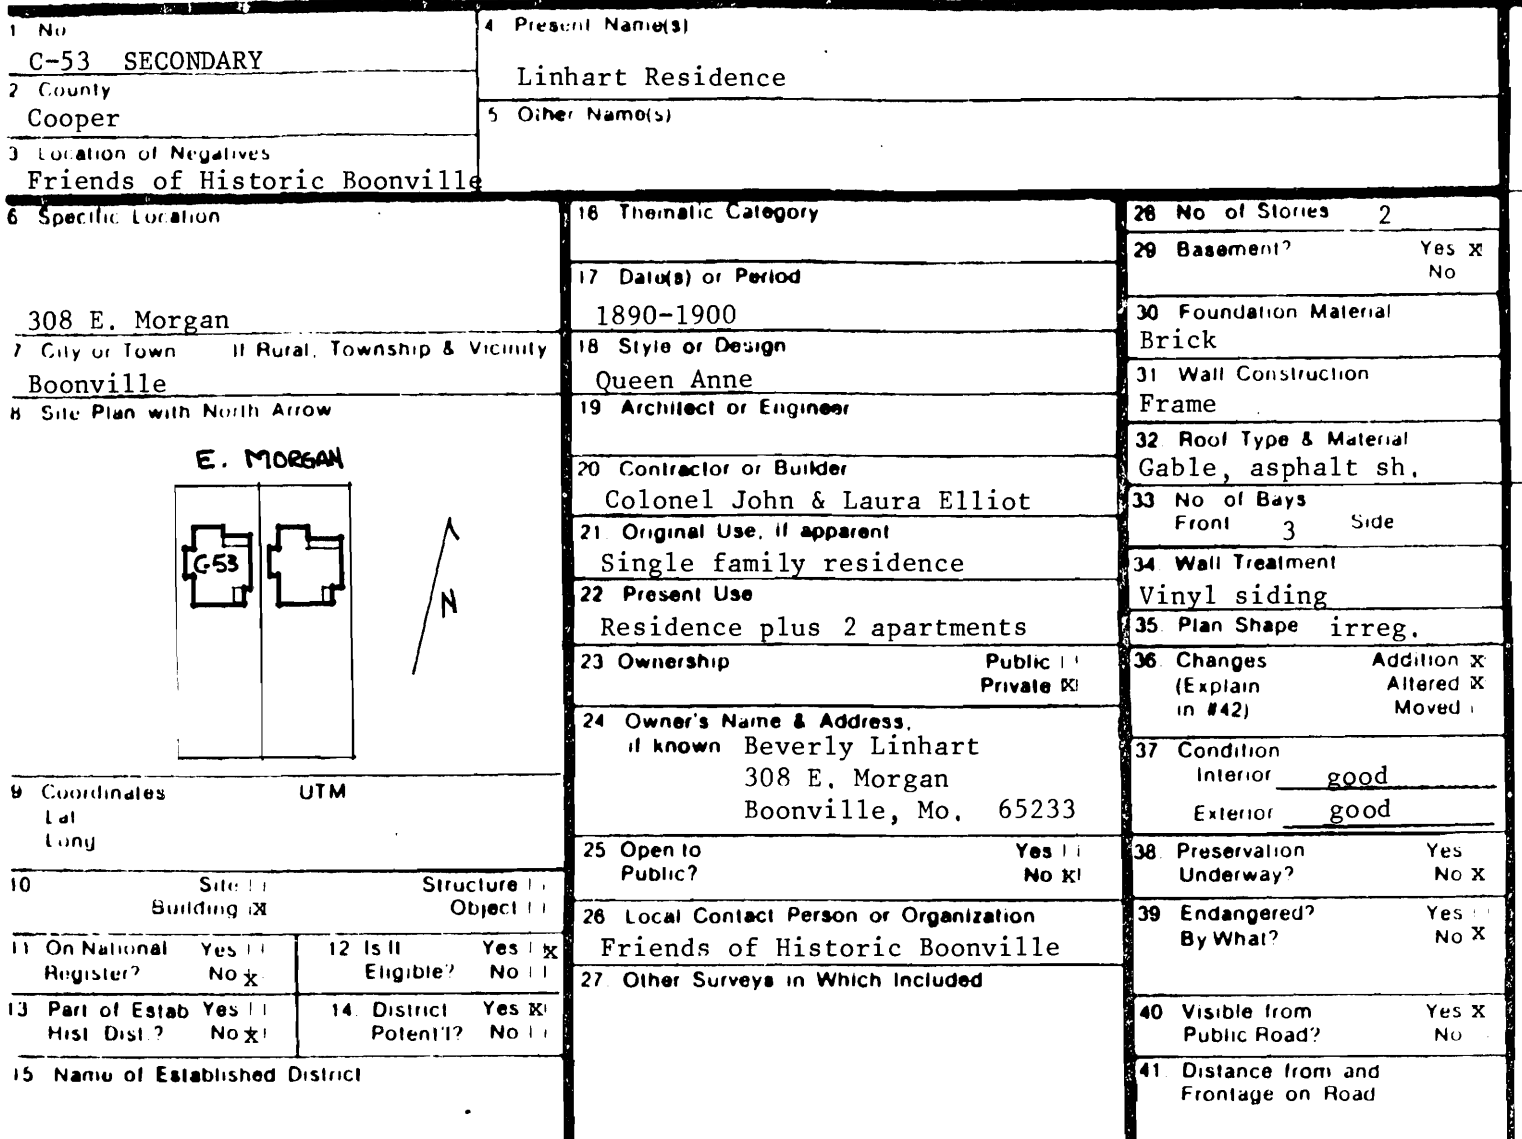 1 No
C-53 SECONDARY
2 County
Cooper
3 Location of Negatives
Friends of Historic Boonville
4 Present Name(s)
Linhart Residence
5 Other Name(s)
6 Specific Location
308 E. Morgan
7 City or Town If Rural, Township & Vicinity
Boonville
8 Site Plan with North Arrow
E. MORGAN
C-53
N
9 Coordinates UTM
Lat
Long
10 Site Structure
Building X Object
11 On National Yes
Register? No X
12 Is It Yes X
Eligible? No
13 Part of Estab Yes
Hist Dist.? No X
14. District Yes X
Potent'l? No
15 Name of Established District
16 Thematic Category
17 Date(s) or Period
1890-1900
18 Style or Design
Queen Anne
19 Architect or Engineer
20 Contractor or Builder
Colonel John & Laura Elliot
21. Original Use, if apparent
Single family residence
22 Present Use
Residence plus 2 apartments
23 Ownership Public
Private X
24 Owner's Name & Address,
if known Beverly Linhart
308 E. Morgan
Boonville, Mo. 65233
25 Open to Yes
Public? No X
26 Local Contact Person or Organization
Friends of Historic Boonville
27. Other Surveys in Which Included
28 No of Stories 2
29 Basement? Yes X
No
30 Foundation Material
Brick
31 Wall Construction
Frame
32. Roof Type & Material
Gable, asphalt sh.
33 No of Bays
Front 3 Side
34 Wall Treatment
Vinyl siding
35. Plan Shape irreg.
36. Changes Addition X
(Explain Altered X
in #42) Moved
37 Condition
Interior good
Exterior good
38. Preservation Yes
Underway? No X
39 Endangered? Yes
By What? No X
40 Visible from Yes X
Public Road? No
41. Distance from and
Frontage on Road